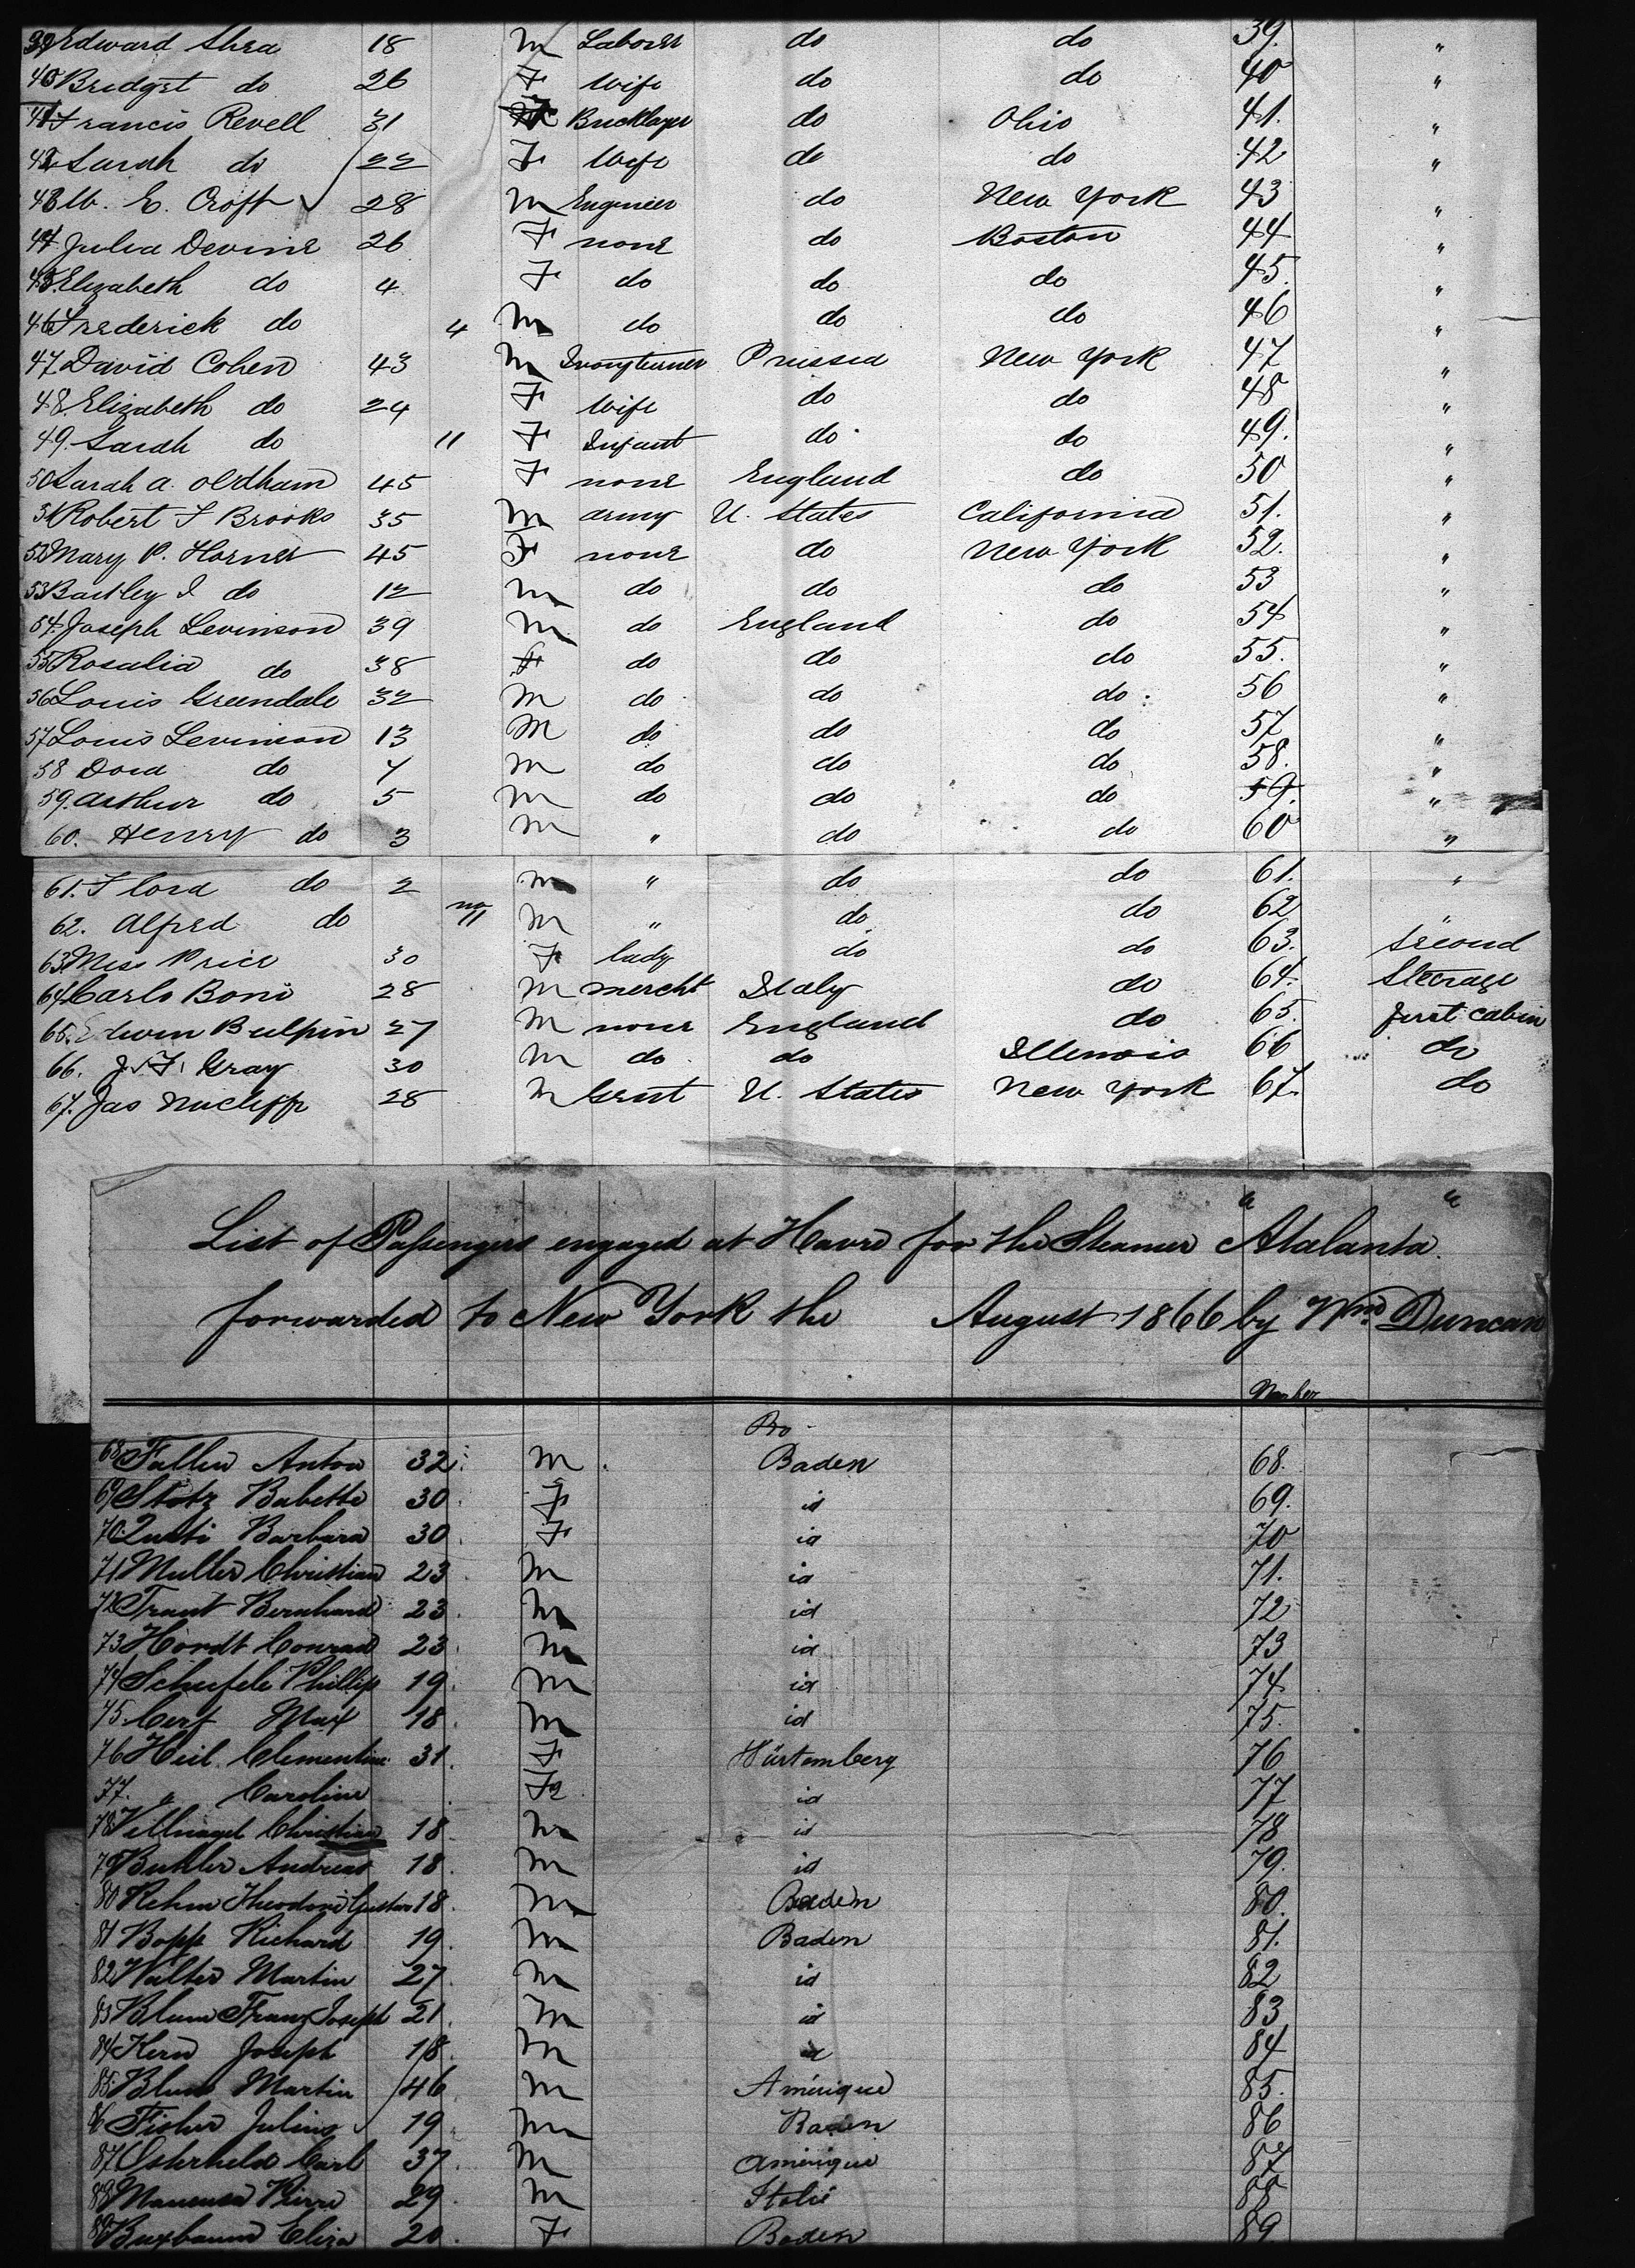 39 Edward Shea 18 M Laborer do do 39. "
40 Bridget do 26 F Wife do do 40 "
41 Francis Revell 31 Bricklayer do Ohio 41. "
42 Sarah do 22 F Wife do do 42 "
43 E. Croft 28 M Engineer do New York 43 "
44 Julia Devine 26 F none do Boston 44 "
45. Elizabeth do 4 F do do do 45. "
46 Frederick do 4 M do do do 46 "
47 David Cohen 43 M Ivoryturner Prussia New York 47 "
48. Elizabeth do 24 F Wife do do 48 "
49. Sarah do 11 F Infant do do 49. "
50 Sarah A. Oldham 45 F none England do 50 "
51 Robert F Brooks 35 M army U. States California 51. "
52 Mary P. Horner 45 F none do New York 52. "
53 Bartley J do 12 M do do do 53 "
54. Joseph Levinson 39 M do England do 54 "
55 Rosalia do 38 F do do do 55. "
56 Louis Greendale 32 M do do do 56 "
57 Louis Levinson 13 M do do do 57 "
58 Dora do 7 M do do do 58. "
59. Arthur do 5 M do do do 59. "
60. Henry do 3 M " do do 60 "
61. Flora do 2 M " do do 61. "
62. Alfred do 11 M " do do 62 "
63 Miss Price 30 F lady do do 63. Second
64 Carlo Boni 28 M mercht Italy do 64. Steerage
65. Edwin Bulpin 27 M none England do 65. first cabin
66. J. F. Gray 30 M do do Illenois 66 do
67. Jas 28 M Gent U. States New York 67. do
List of Passengers engaged at Havre for the Steamer "Atalanta"
forwarded to New York the August 1866 by Wm. Duncan
Number
68 Anton 32 M Baden 68.
69 Stotz Babette 30 F id 69.
70 Barbara 30 F id 70
71 Muller Christian 23 M id 71.
72 Traut Bernhard 23 M id 72
73 Hordt Conrad 23 M id 73
74 Schufele Phillip 19 M id 74
75. Cerf Max 18 M id 75.
76 Heil Clementine 31 F Würtemberg 76
77. " Caroline F id 77
78 Vellnagel Christian 18 M id 78
79 Buhler Andreas 18 M id 79.
80 Rehm Theodore Gustav 18 M Baden 80.
81 Bopp Richard 19 M Baden 81.
82 Walter Martin 27 M id 82
83 Blum Franz Joseph 21 M id 83
84 Kern Joseph 18 M id 84
85. Blum Martin 46 M Amérique 85.
86 Fisher Julius 19 M Baden 86
87 Osterheld Carl 37 M Amérique 87
88 Pierre 29 M Italie 88
89 Buxbaum Eliza 20 F Baden 89